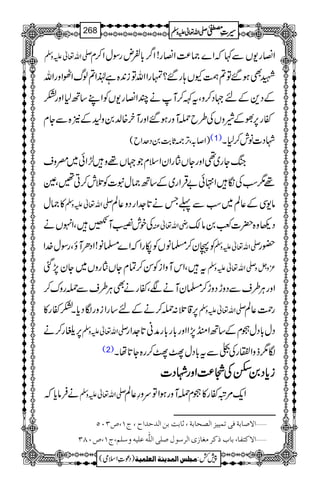 سیرتِ مصطفی صلی اللہ تعالیٰ علیہ وسلم 268
انصاریوں سے کہا کہ اے جماعت انصار! اگر بالفرض رسول اکرم صلی اللہ تعالیٰ علیہ وسلم
شہید بھی ہو گئے تو تم ہمت کیوں ہار گئے؟ تمہارا اللہ تو زندہ ہے لہٰذا تم لوگ اٹھو اور اللہ
کے دین کے لئے جہاد کرو، یہ کہہ کر آپ نے چند انصاریوں کو اپنے ساتھ لیا اور لشکر
کفار پر بھوکے شیروں کی طرح حملہ آور ہو گئے اور آخر خالد بن ولید کے نیزہ سے جام
شہادت نوش کر لیا۔(1) (اصابہ، ترجمہ ثابت بن دحداح)
جنگ جاری تھی اور جاں نثاران اسلام جو جہاں تھے وہیں لڑائی میں مصروف
تھے مگر سب کی نگاہیں انتہائی بے قراری کے ساتھ جمال نبوت کو تلاش کرتی تھیں، عین
مایوسی کے عالم میں سب سے پہلے جس نے تاجدار دو عالم صلی اللہ تعالیٰ علیہ وسلم کا جمال
دیکھا وہ حضرت کعب بن مالک رضی اللہ تعالیٰ عنہ کی خوش نصیب آنکھیں ہیں، انہوں نے
حضور صلی اللہ تعالیٰ علیہ وسلم کو پہچان کر مسلمانوں کو پکارا کہ اے مسلمانو! ادھر آؤ، رسول خدا
عزوجل وصلی اللہ تعالیٰ علیہ وسلم یہ ہیں، اس آواز کو سن کر تمام جاں نثاروں میں جان پڑ گئی
اور ہر طرف سے دوڑ دوڑ کر مسلمان آنے لگے، کفار نے بھی ہر طرف سے حملہ روک کر
رحمت عالم صلی اللہ تعالیٰ علیہ وسلم پر قاتلانہ حملہ کرنے کے لئے سارا زور لگا دیا۔ لشکر کفار کا
دل بادل ہجوم کے ساتھ امنڈ پڑا اور بار بار مدنی تاجدار صلی اللہ تعالیٰ علیہ وسلم پر یلغار کرنے
لگا مگر ذوالفقار کی بجلی سے یہ بادل پھٹ پھٹ کر رہ جاتا تھا۔(2)
زیاد بن سکن کی شجاعت اور شہادت
ایک مرتبہ کفار کا ہجوم حملہ آور ہوا تو سرور عالم صلی اللہ تعالیٰ علیہ وسلم نے فرمایا کہ
......الاصابة فی تمییز الصحابة ، ثابت بن الدحداح ، ج۱،ص۵۰۳
......الاکتفاء، باب ذکر مغازی الرسول صلی اللّٰہ علیہ وسلم،ج۱،ص۳۸۰
پیش کش: مجلس المدینة العلمیة (دعوتِ اسلامی)